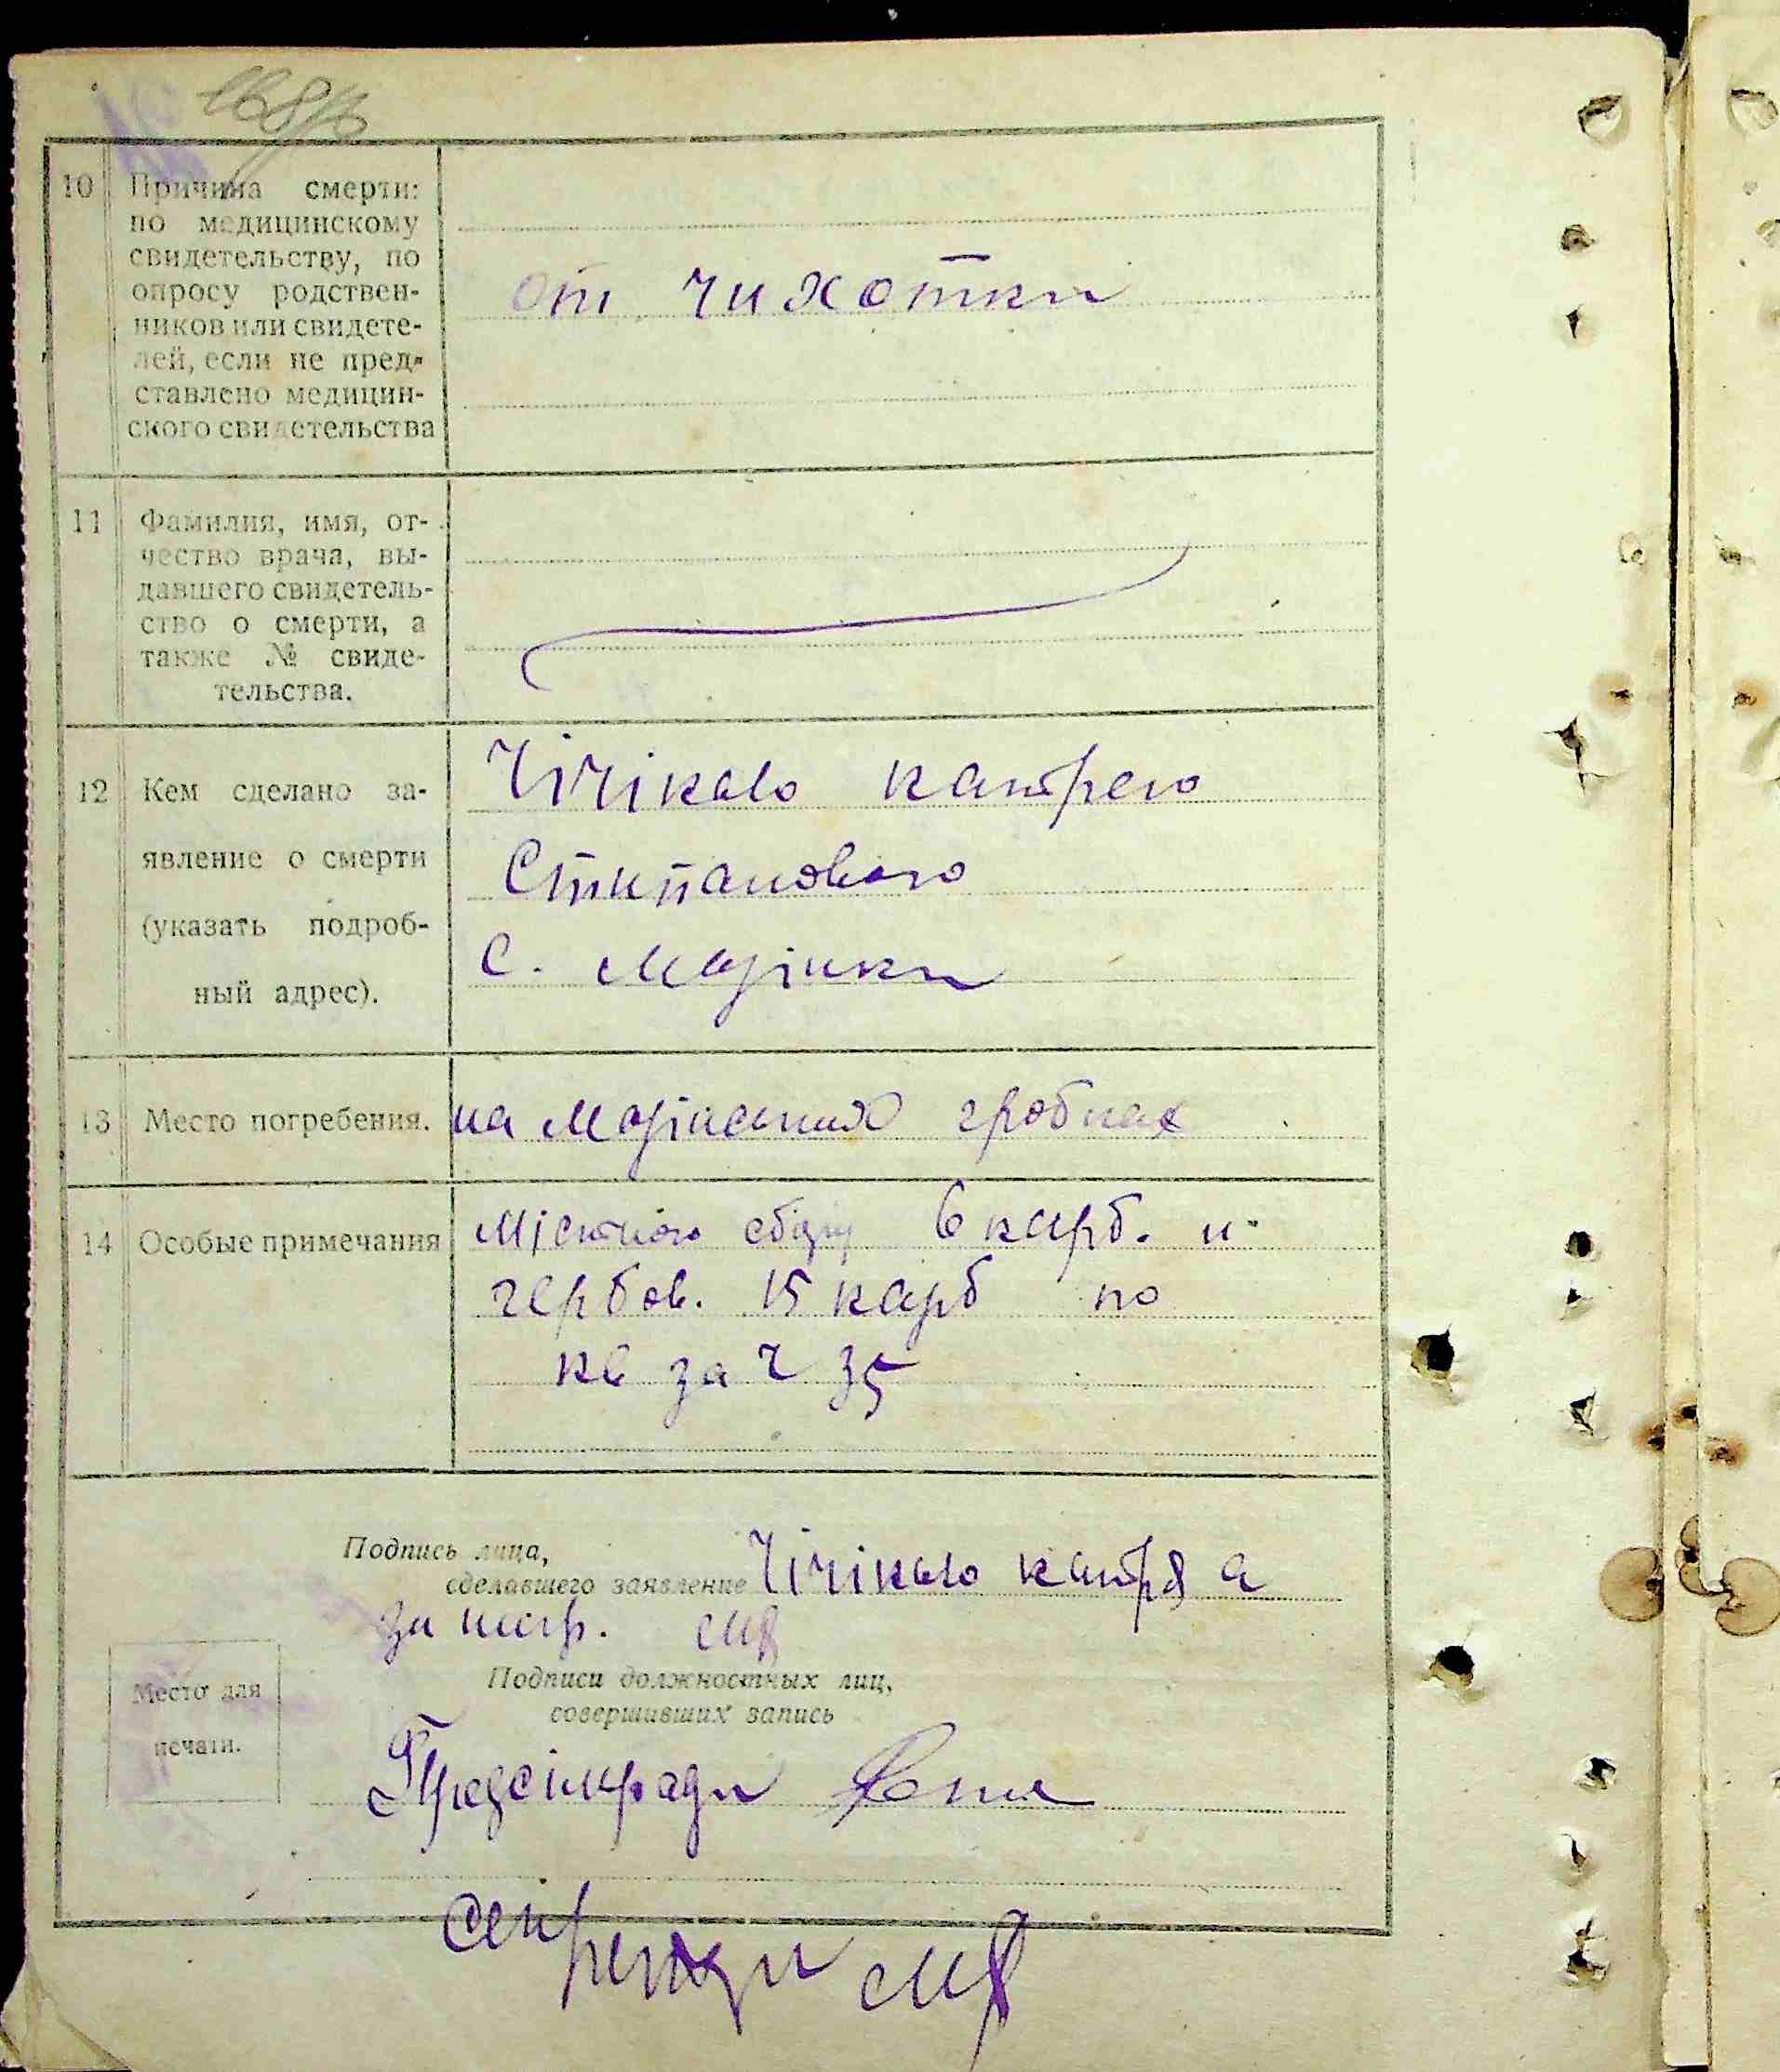 10 Причина смерти:
по медицинскому
свидетельству, по
опросу родствен-
ников или свидете-
лей, если не пред-
ставлено медицин-
ского свидетельства
от чихотки
11 Фамилия, имя, от-
чество врача, вы-
давшего свидетель-
ство о смерти, а
также № свиде-
тельства.
12 Кем сделано за-
явление о смерти
(указать подроб-
ный адрес).
Чічікало
Стипановою
с.
13 Место погребения.
на гробках
14 Особые примечания
збору 6 карб. и
гербов. 15 карб по
кв за ч 35
Подпись лица,
сделавшего заявление Чічікало
за негр.
Подписи должностных лиц,
совершивших запись
Место для
печати.
Предсільради